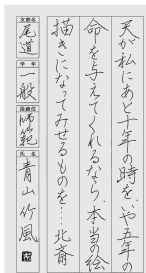 天が私にあと十年の時を、いや五年の
命を与えてくれるなら、本当の絵
描きになってみせるものを…北斎
支部名 尾道
学年 一般
段級位 師範
氏名 青山竹風